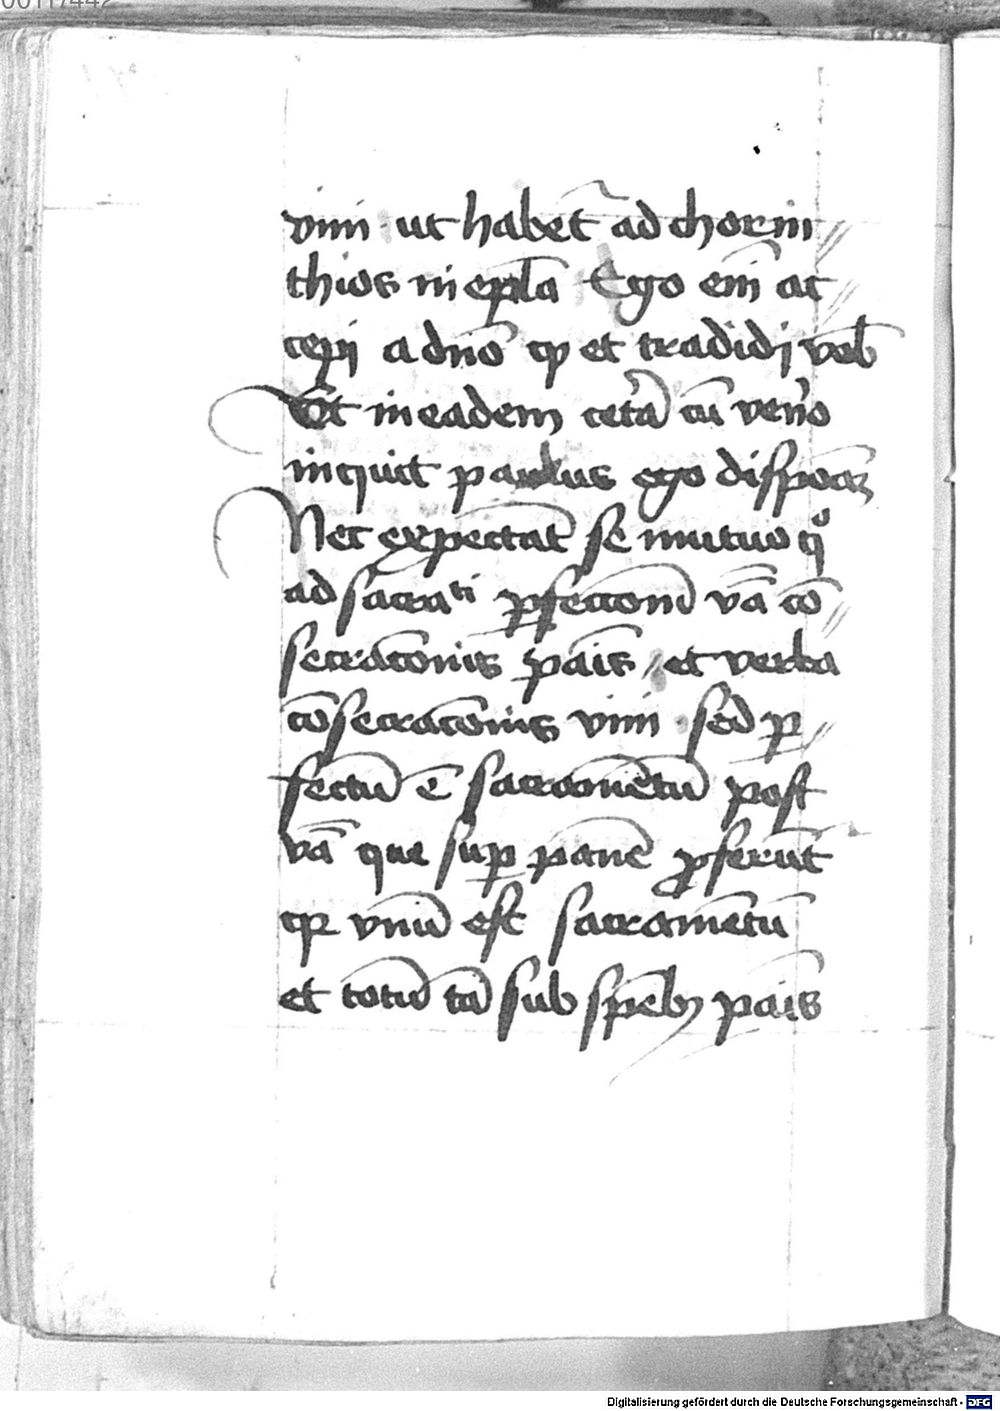 vini ut habet̄ ad chorin
thios in ep̄la Ego em̄ ac
cepi a dn̄o qƺ et tradidi vob̄
Et in eadem cet̄a cū ven̄o
inquit paulus ego dispoā
Nec expectāt se mutuo qͦ
ad sacrati ꝑfeccōnē v̄a cō
secracōnis pāis et verba
cōsecracōnis vini sed ꝑ
fectū ē sacramētū post
v̄a que suꝑ panē ꝓferūt
qꝛ vnū est sacramētū
et totū tā sub spēbꝫ pāis
Digitalisierung gefördert durch die Deutsche Forschungsgemeinschaft - DFG